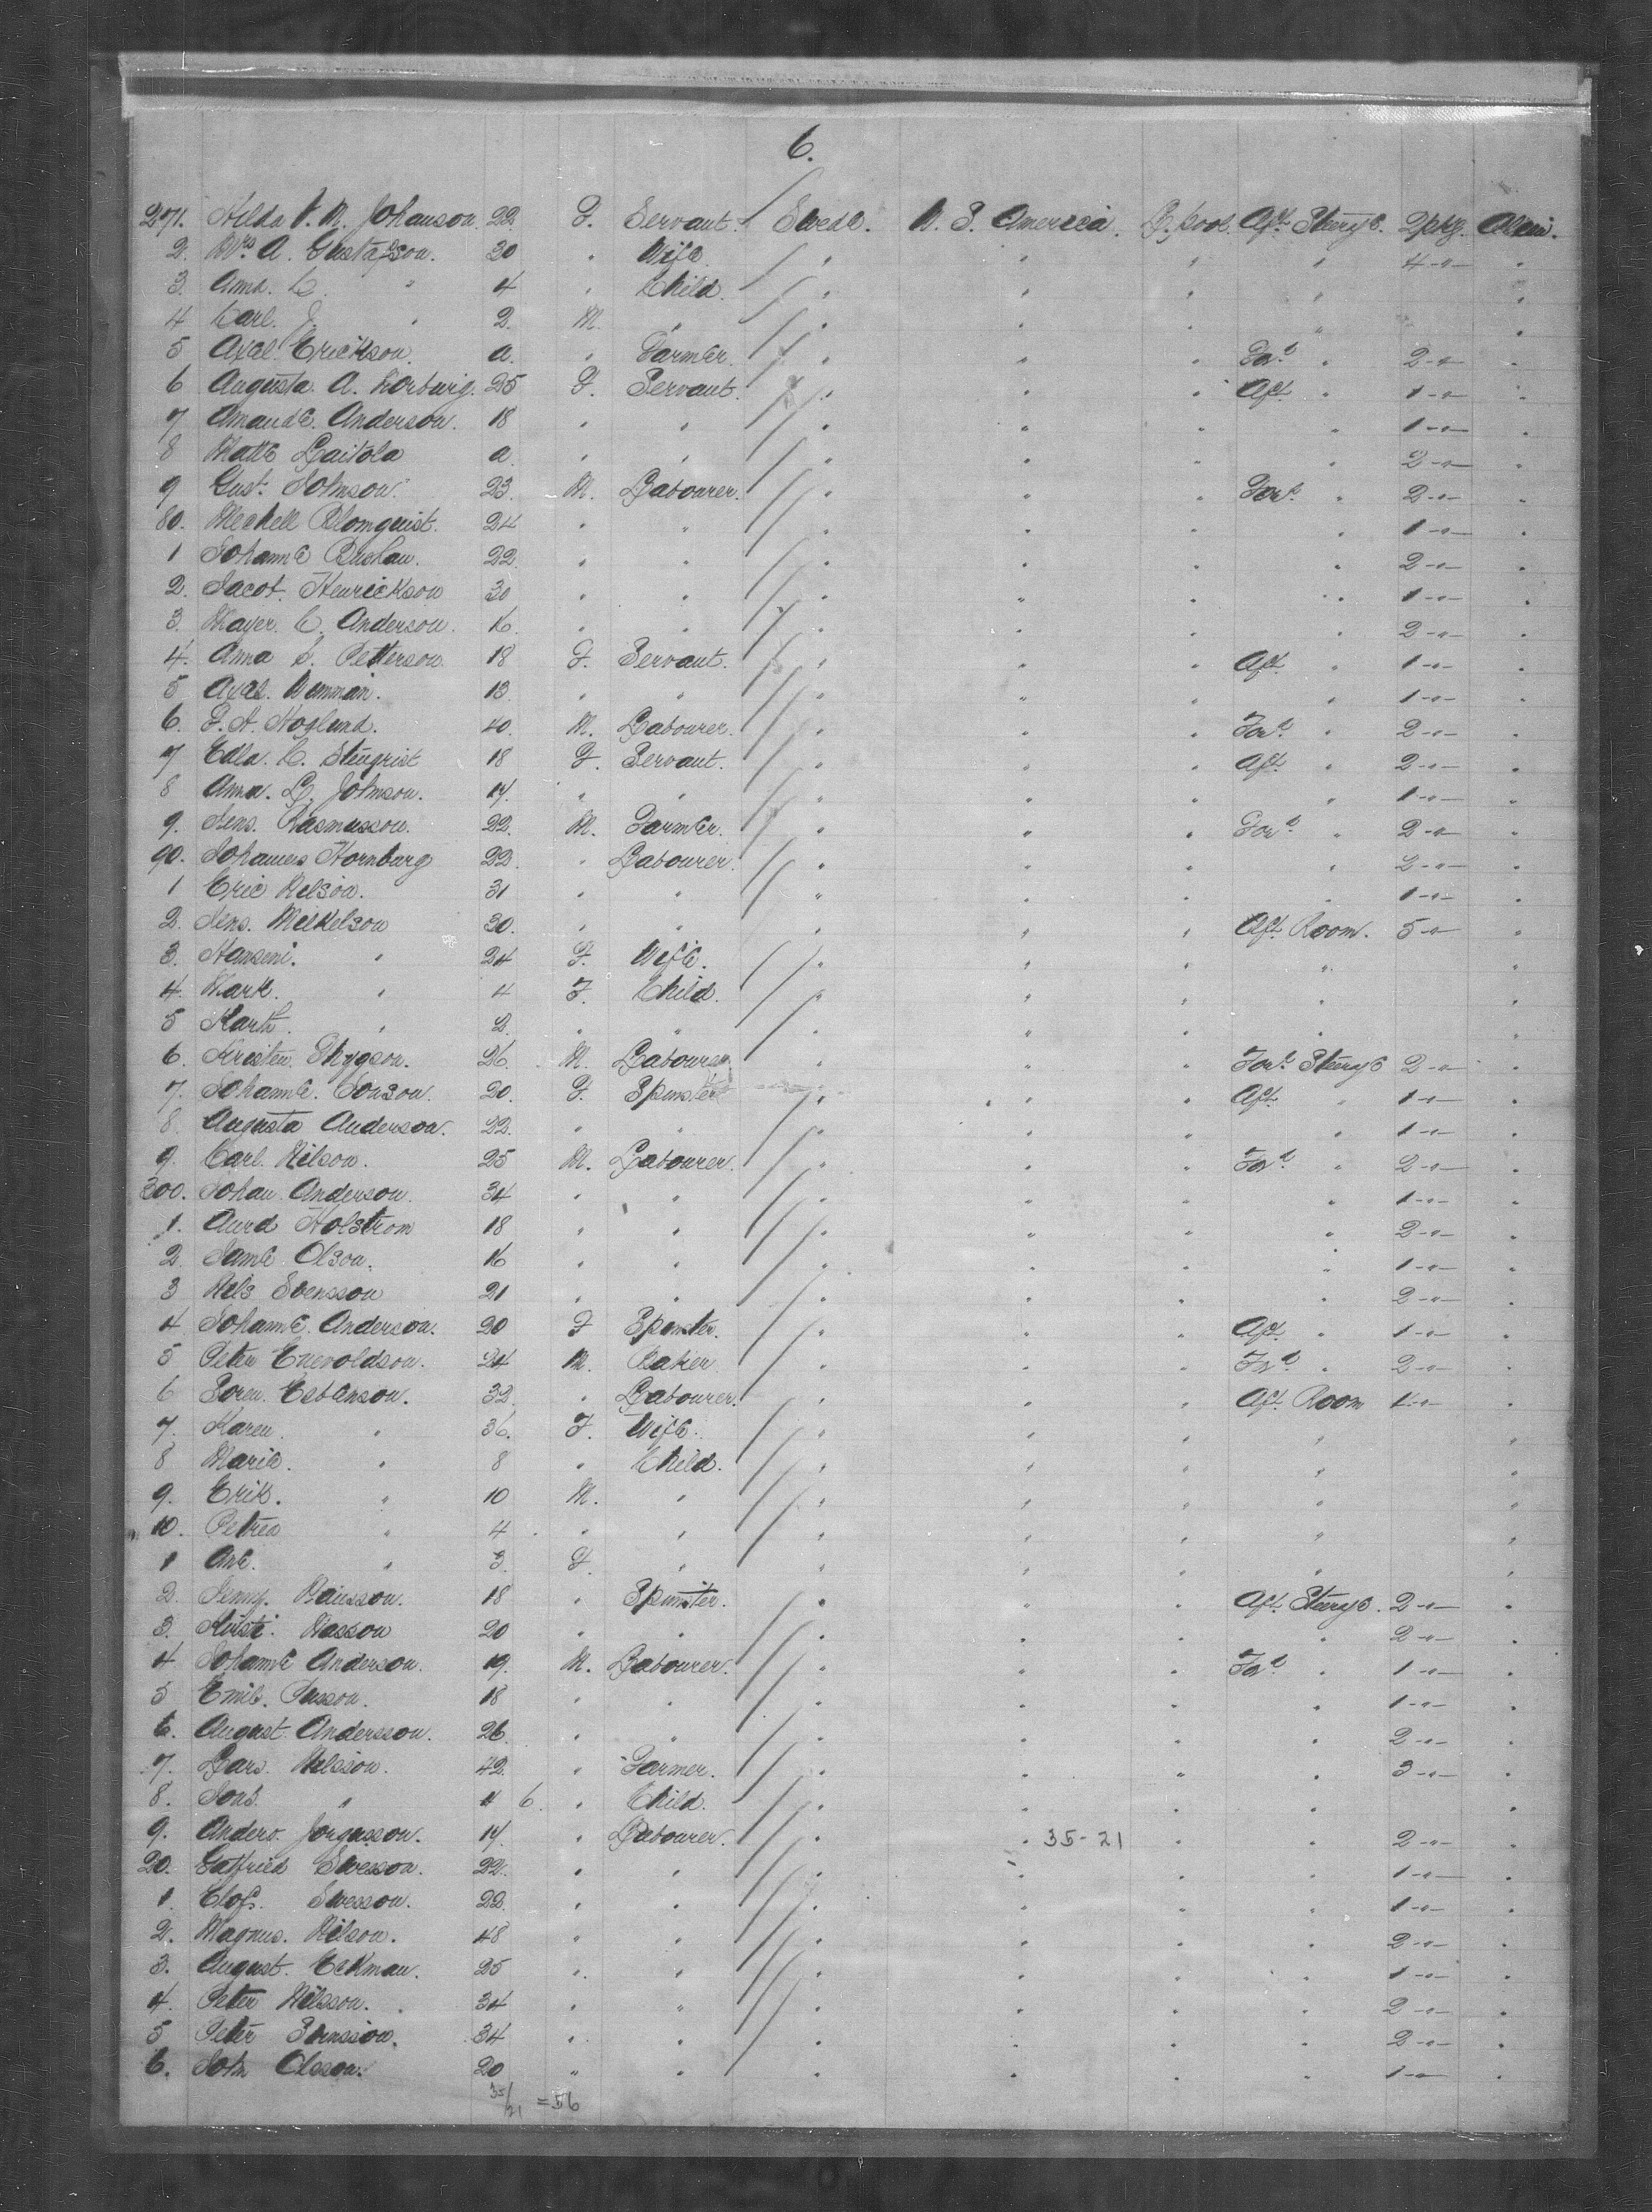 6.
271. Hilda V. M. Johanson 22 F. Servant Swede U. S. America L. pool Aft Steerge 2 pkg.
2. Mrs A. Gustafson. 30 " Wife " " " " 4 -"- "
3. Anna. C. " 4 " Child " " " " "
4 Carl. J. " 2. M. " " " " " "
5 Axel Erickson. a. " Farmer. " " " Ford " 2 -"- "
6 Augusta A. 25 F. Servant. " " " Aft " 1 -"- "
7 Amande. Anderson. 18 " " " " " " 1 -"- "
8 Matte Laitola a. " " " " " " 2 -"- "
9 Gust. Johnson. 23. M. Labourer. " " " Ford " 2 -"- "
80. Mechell Blomquist. 24 " " " " " " 1 -"- "
1 Johanne 22. " " " " " " 2 -"- "
2. Jacob. Henrickson 30 " " " " " " 1 -"- "
3. Mayer. C. Anderson. 16. " " " " " " 2 -"- "
4. Anna S. Petterson 18 F. Servant. " " " Aft " 1 -"- "
5 13 " " " " " " 1 -"- "
6. Hoglund. 40. M. Labourer. " " " Ford " 2 -"- "
7 Edla. C. Stengrist 18 F. Servant. " " " Aft " 2 -"- "
8 Anna. L. Johnson. 17. " " " " " " 1 -"- "
9. Jens. Rasmusson. 22. M. Farmer. " " " Ford " 2 -"- "
90. Johannes Hornburg 22. " Labourer " " " " 2 -"- "
1 Eric Nelson. 31 " " " " " " 1 -"- "
2. Jens. Mickelson 30. " " " " " Aft Room. 5 -"- "
3. Hanseni. " 24 F. Wife. " " " " "
4. Mark. " 4 F. Child. " " " " "
5 Karth. " 2. " " " " " " "
6. Kristen 26. M. Labourer. " " " Ford Steerge 2 -"- "
7. Johanne. Jonson. 20. F. Spinster " " " Aft " 1 -"- "
8. Augusta Anderson. 22. " " " " " " 1 -"- "
9. Carl. Nilson. 25 M. Labourer. " " " Ford " 2 -"- "
300. Johan. Anderson. 34 " " " " " " 1 -"- "
1. Holstrom 18 " " " " " " 2 -"- "
2. Olson. 16 " " " " " " 1 -"- "
3 Nels Svensson 21 " " " " " " 2 -"- "
4 Johanne. Anderson. 20 F Spinster. " " " Aft " 1 -"- "
5 Peter Enevoldson. 24 M. Baker " " " Ford " 2 -"- "
6 Soren. Esbenson. 32. " Labourer. " " " Aft Room 4 -"- "
7. Karen. " 36. F. Wife. " " " " "
8 Marie. " 8 " Child. " " " " "
9. Erik. " 10 M. " " " " " "
10. Petrea " 4 " " " " " " "
1 Ane. " 3 F. " " " " " "
2. Jenny. 18 " Spinster. " " " Aft Steerge. 2 -"- "
3. Kirsti. Masson 20 " " " " " " 2 -"- "
4 Johanne Anderson. 19. M. Labourer. " " " Ford " 1 -"- "
5 Emil. Passon. 18 " " " " " " 1 -"- "
6. August. Andersson. 26. " " " " " " 2 -"- "
7. Lars. Nelsson. 42. " Farmer. " " " " 3 -"- "
8. Jons. " 6. " Child. " " " " "
9. Anders. Jorgasson. 17. " Labourer. " " 35-21 " " 2 -"- "
20. Gotfried Swesson. 22. " " " " " " 1 -"- "
1. Elof. Swesson. 22. " " " " " " 1 -"- "
2. Magnus. Nilson. 48 " " " " " " 2 -"- "
3. August. Eckman. 25 " " " " " " 1 -"- "
4. Peter Nilsson. 34 " " " " " " 2 -"- "
5 Peter 34 " " " " " " 2 -"- "
6. John Olsson. 20 " " " " " " 1 -"- "
35/21 = 56